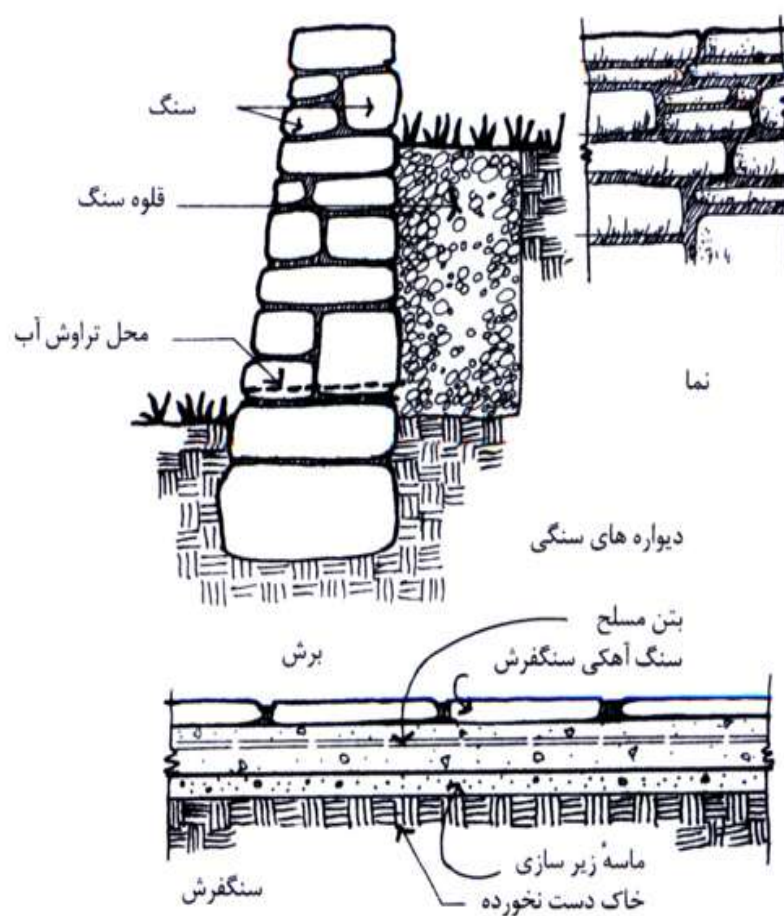 سنگ
قلوه سنگ
محل تراوش آب
نما
دیواره های سنگی
برش
بتن مسلح
سنگ آهکی سنگفرش
ماسهٔ زیر سازی
خاک دست نخورده
سنگفرش